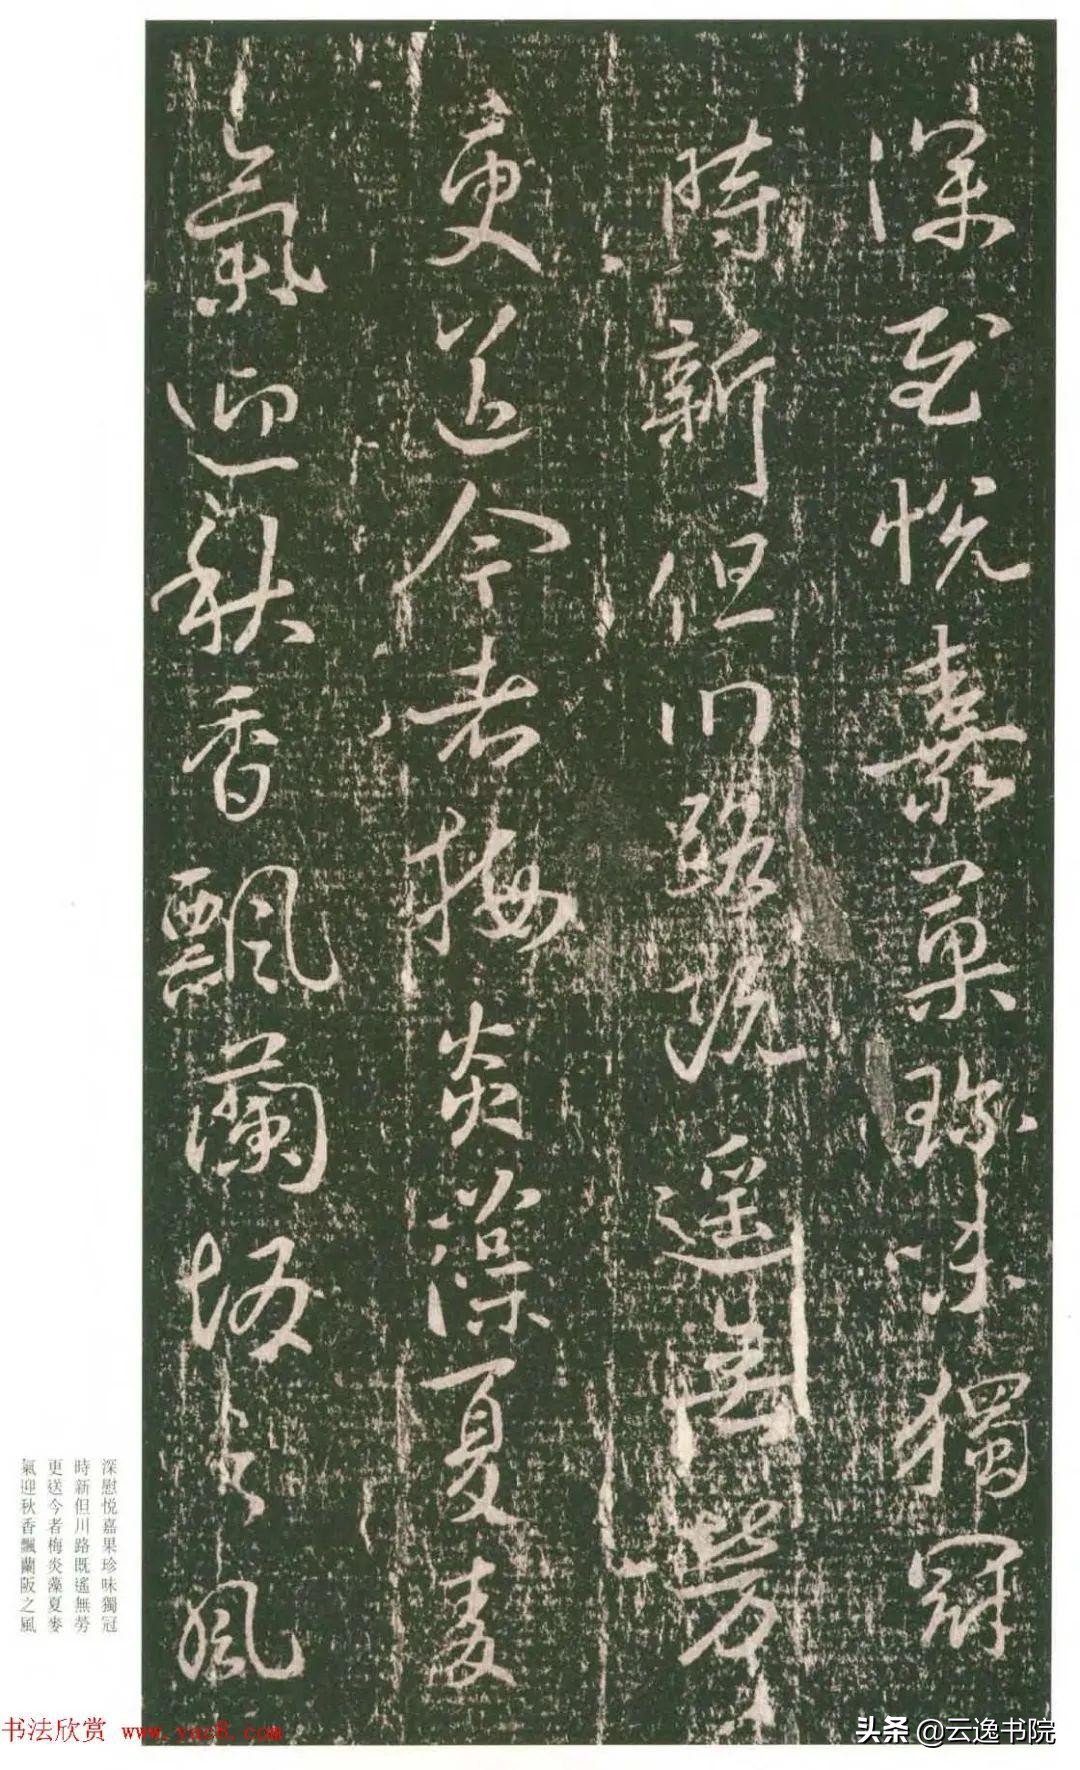 深慰悦嘉菓珍味獨冠
時新但川路既遥無勞
更送今者梅炎藻夏麦
氣迎秋香飄蘭坂之風
深慰悦嘉果珍味獨冠
時新但川路既遙無勞
更送今者梅炎藻夏麥
氣迎秋香飄蘭阪之風
书法欣赏 www.yac8.com
头条 @云逸书院